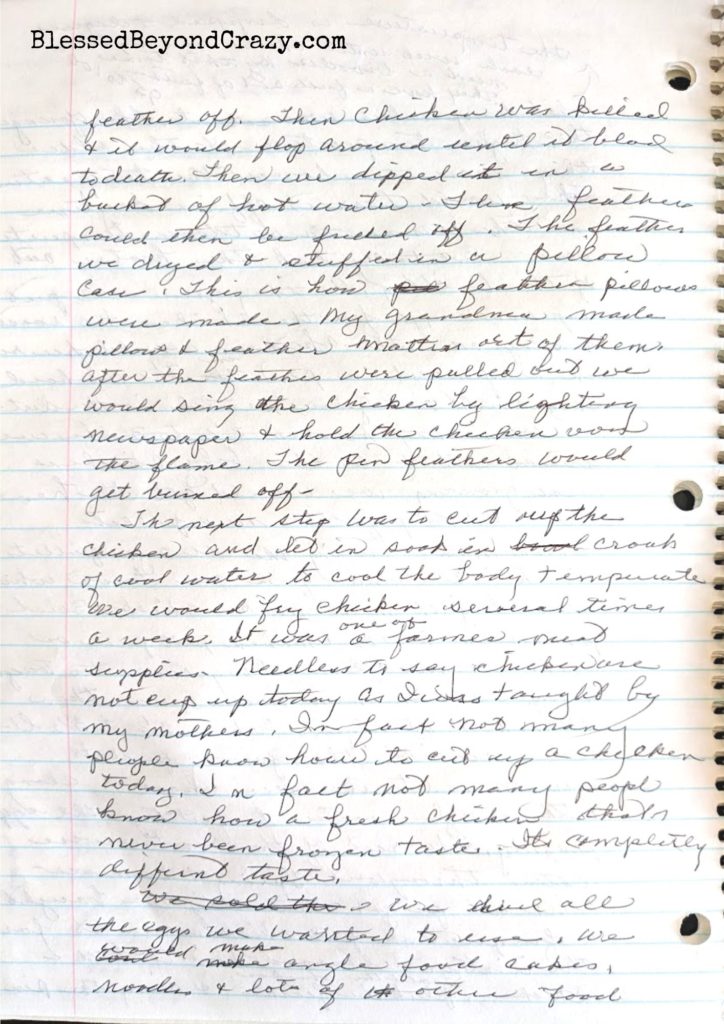 BlessedBeyondCrazy.com
feather off. Then Chicken was killed
& it would flop around until it bled
to death. Then we dipped it in a
bucket of hot water - The feathers
could then be pulled off. The feather
we dryed & stuffed in a pillow
case. This is how feather pillows
were made - My grandma made
pillow & feather out of them.
after the feathers were pulled out we
would sing the chicken by lighting
newspaper & hold the chicken over
the flame. The pin feathers would
get burned off -
The next step was to cut up the
chicken and let in soak in crock
of cool water to cool the body temperate
We would fry chicken serveral times
a week. It was one of a farmes meat
supplies - Needless to say chicken are
not cup up today as I was taught by
my mothers. In fact not many
people know how to cut up a chicken
today. In fact not many peopl
know how a fresh chicken thats
never been frozen taste - Its completly
diffirnt taste.
We sold the we had all
the eggs we wanted to use. we
would make angle food cakes,
noodles & lots of other food